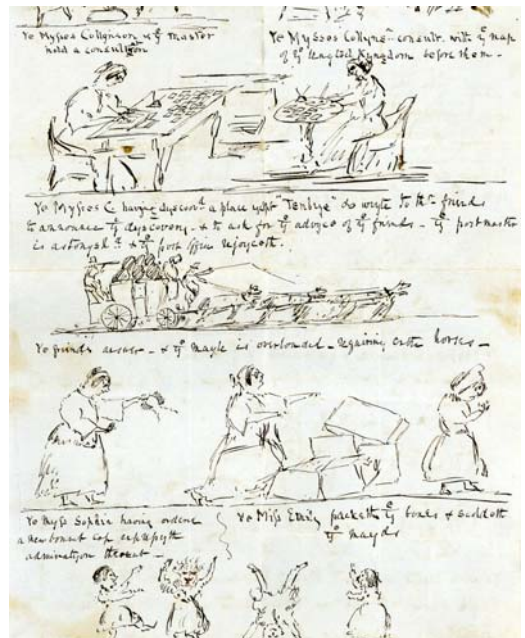 Yᵉ Mysses Collynson & yᵉ master
hold a consultⁿ
Yᵉ Mysses Collynsⁿ consult with yᵉ map
of yᵉ United Kyngdom before them -
Yᵉ Mysses C. having dyscovᵈ a place yclept "Tenbye" do wryte to thʳ friends
to announce yᵉ dyscovery - & to ask for yᵉ advyce of yᵉ friends - yᵉ postmaster
is astonyshᵈ & yᵉ post office rejoyceth.
Yᵉ friends answer - & yᵉ mayle is overloaded - requiring extra horses -
Yᵉ Myss Sophia having ordered
a new bonnet cap expresseth
admiration thereat -
Yᵉ Miss Emily packeth yᵉ boxes & scoldeth
yᵉ mayds